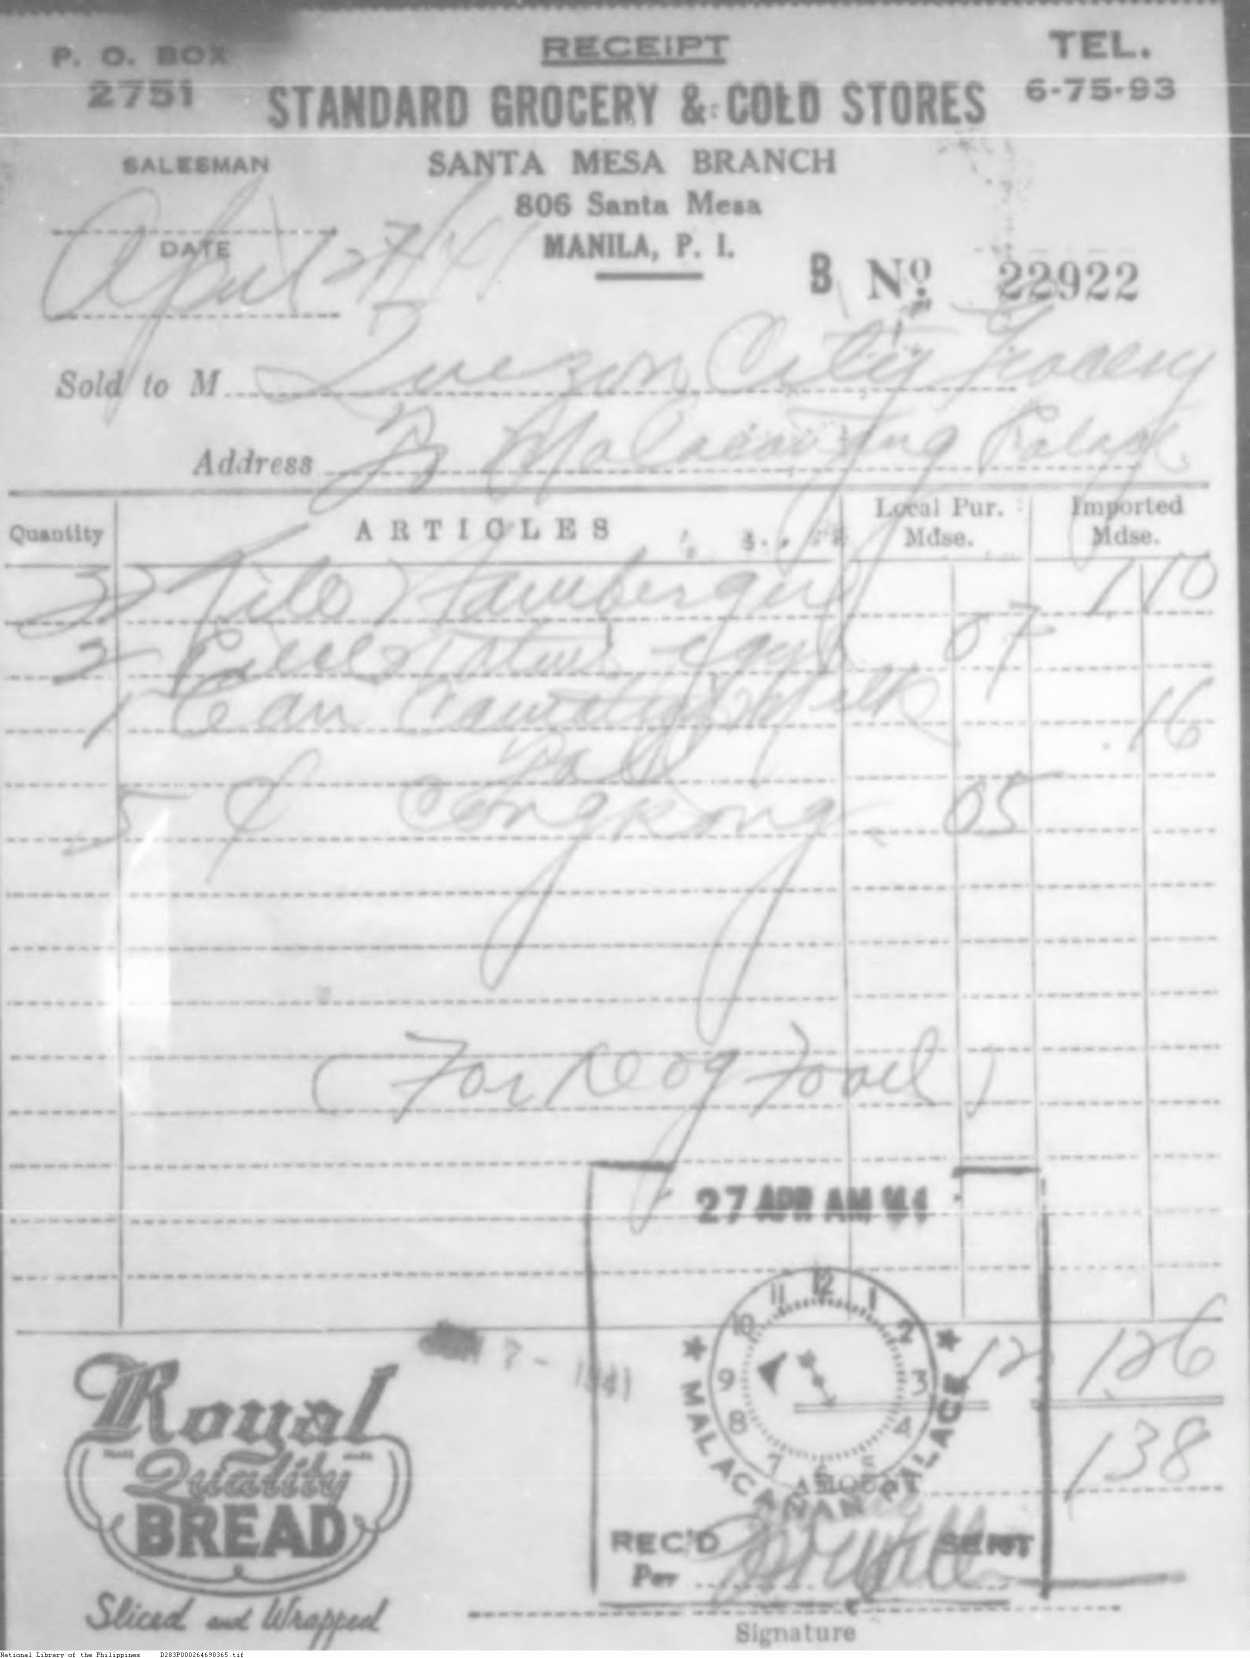 P. O. BOX
2751
RECEIPT
TEL.
6-75-93
STANDARD GROCERY & COLD STORES
SALESMAN
SANTA MESA BRANCH
806 Santa Mesa
DATE
April 27/41
MANILA, P. I.
B No. 22922
Sold to M Quezon City Grocery
Address Malacañang Palace
Quantity ARTICLES Local Pur. Mdse. Imported Mdse.
Kilo Hamberger 1.10
2 07
1 Can Milk 16
5 ¢ Cangkong 05
(For Dog Food)
27 APR AM 41
1941
12 11 1 10 2 9 3 8 4 7 5 6
★ MALACAÑAN PALACE ★
12 1.26
1.38
AMOUNT
REC'D SENT
Per
Signature
Royal
Quality
BREAD
Sliced and Wrapped
National Library of the Philippines D283P000264698365.tif